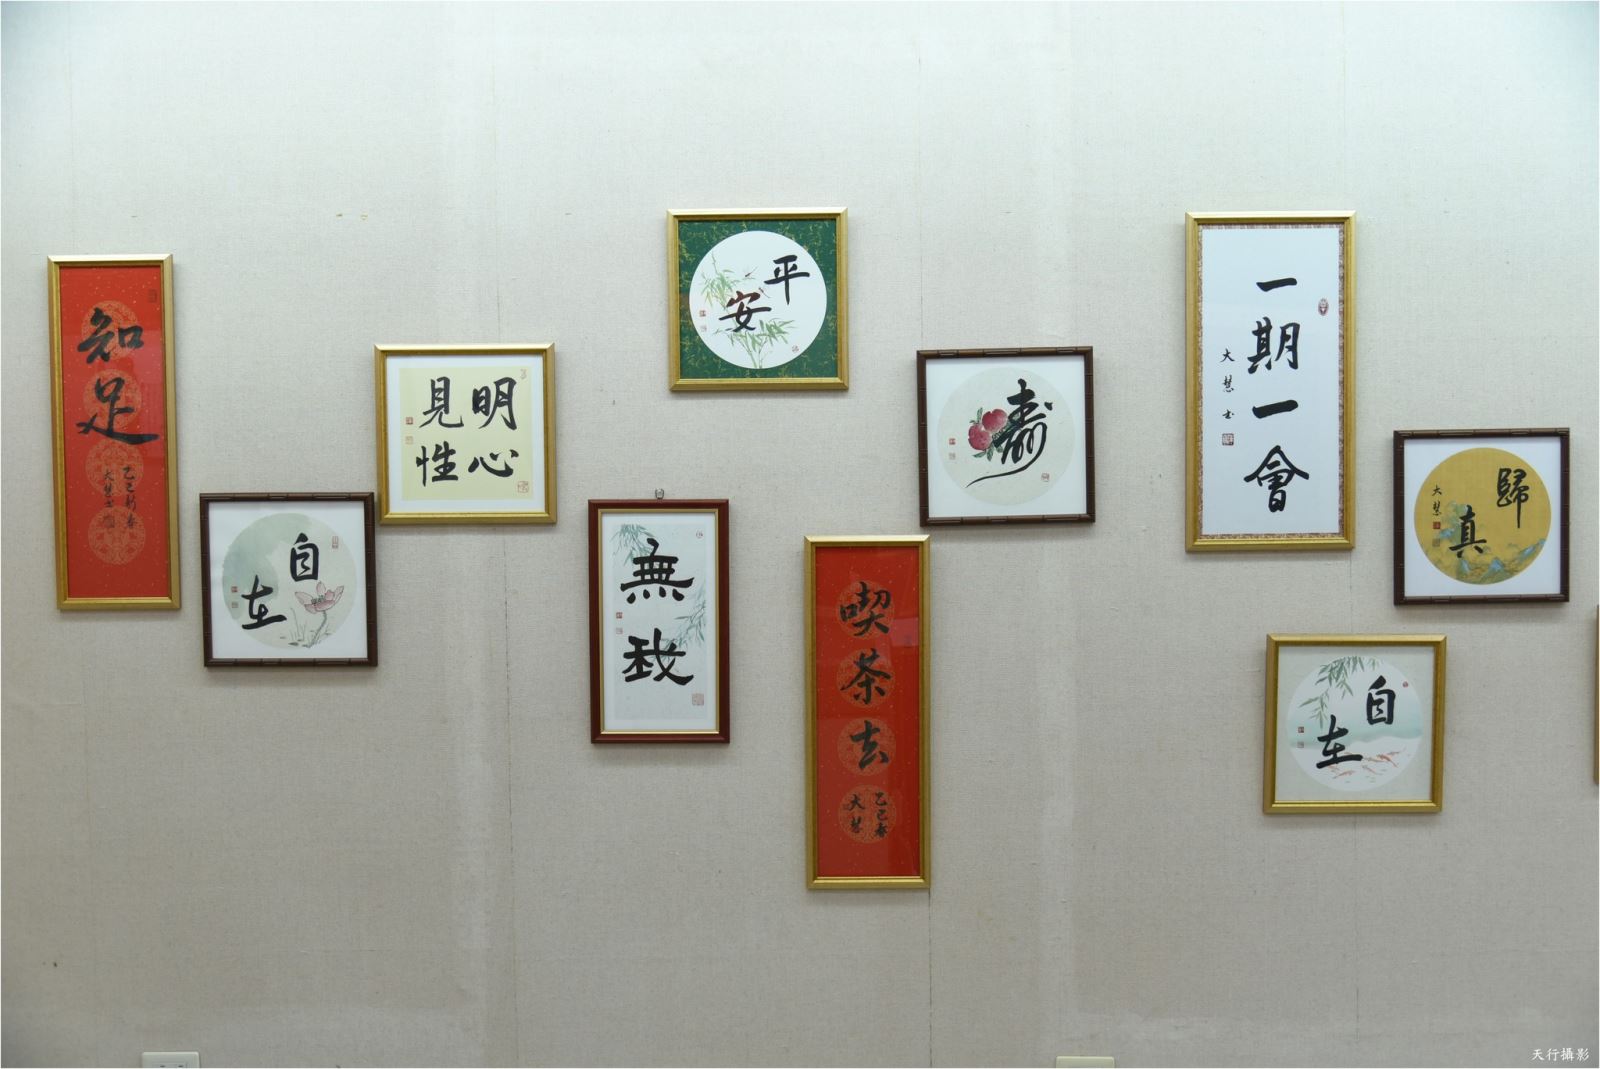 知足
乙巳新春
大慧书
自在
明心
見性
平安
無我
喫茶去
乙巳春
大慧
壽
一期一會
大慧书
歸真
大慧
自在
天行攝影